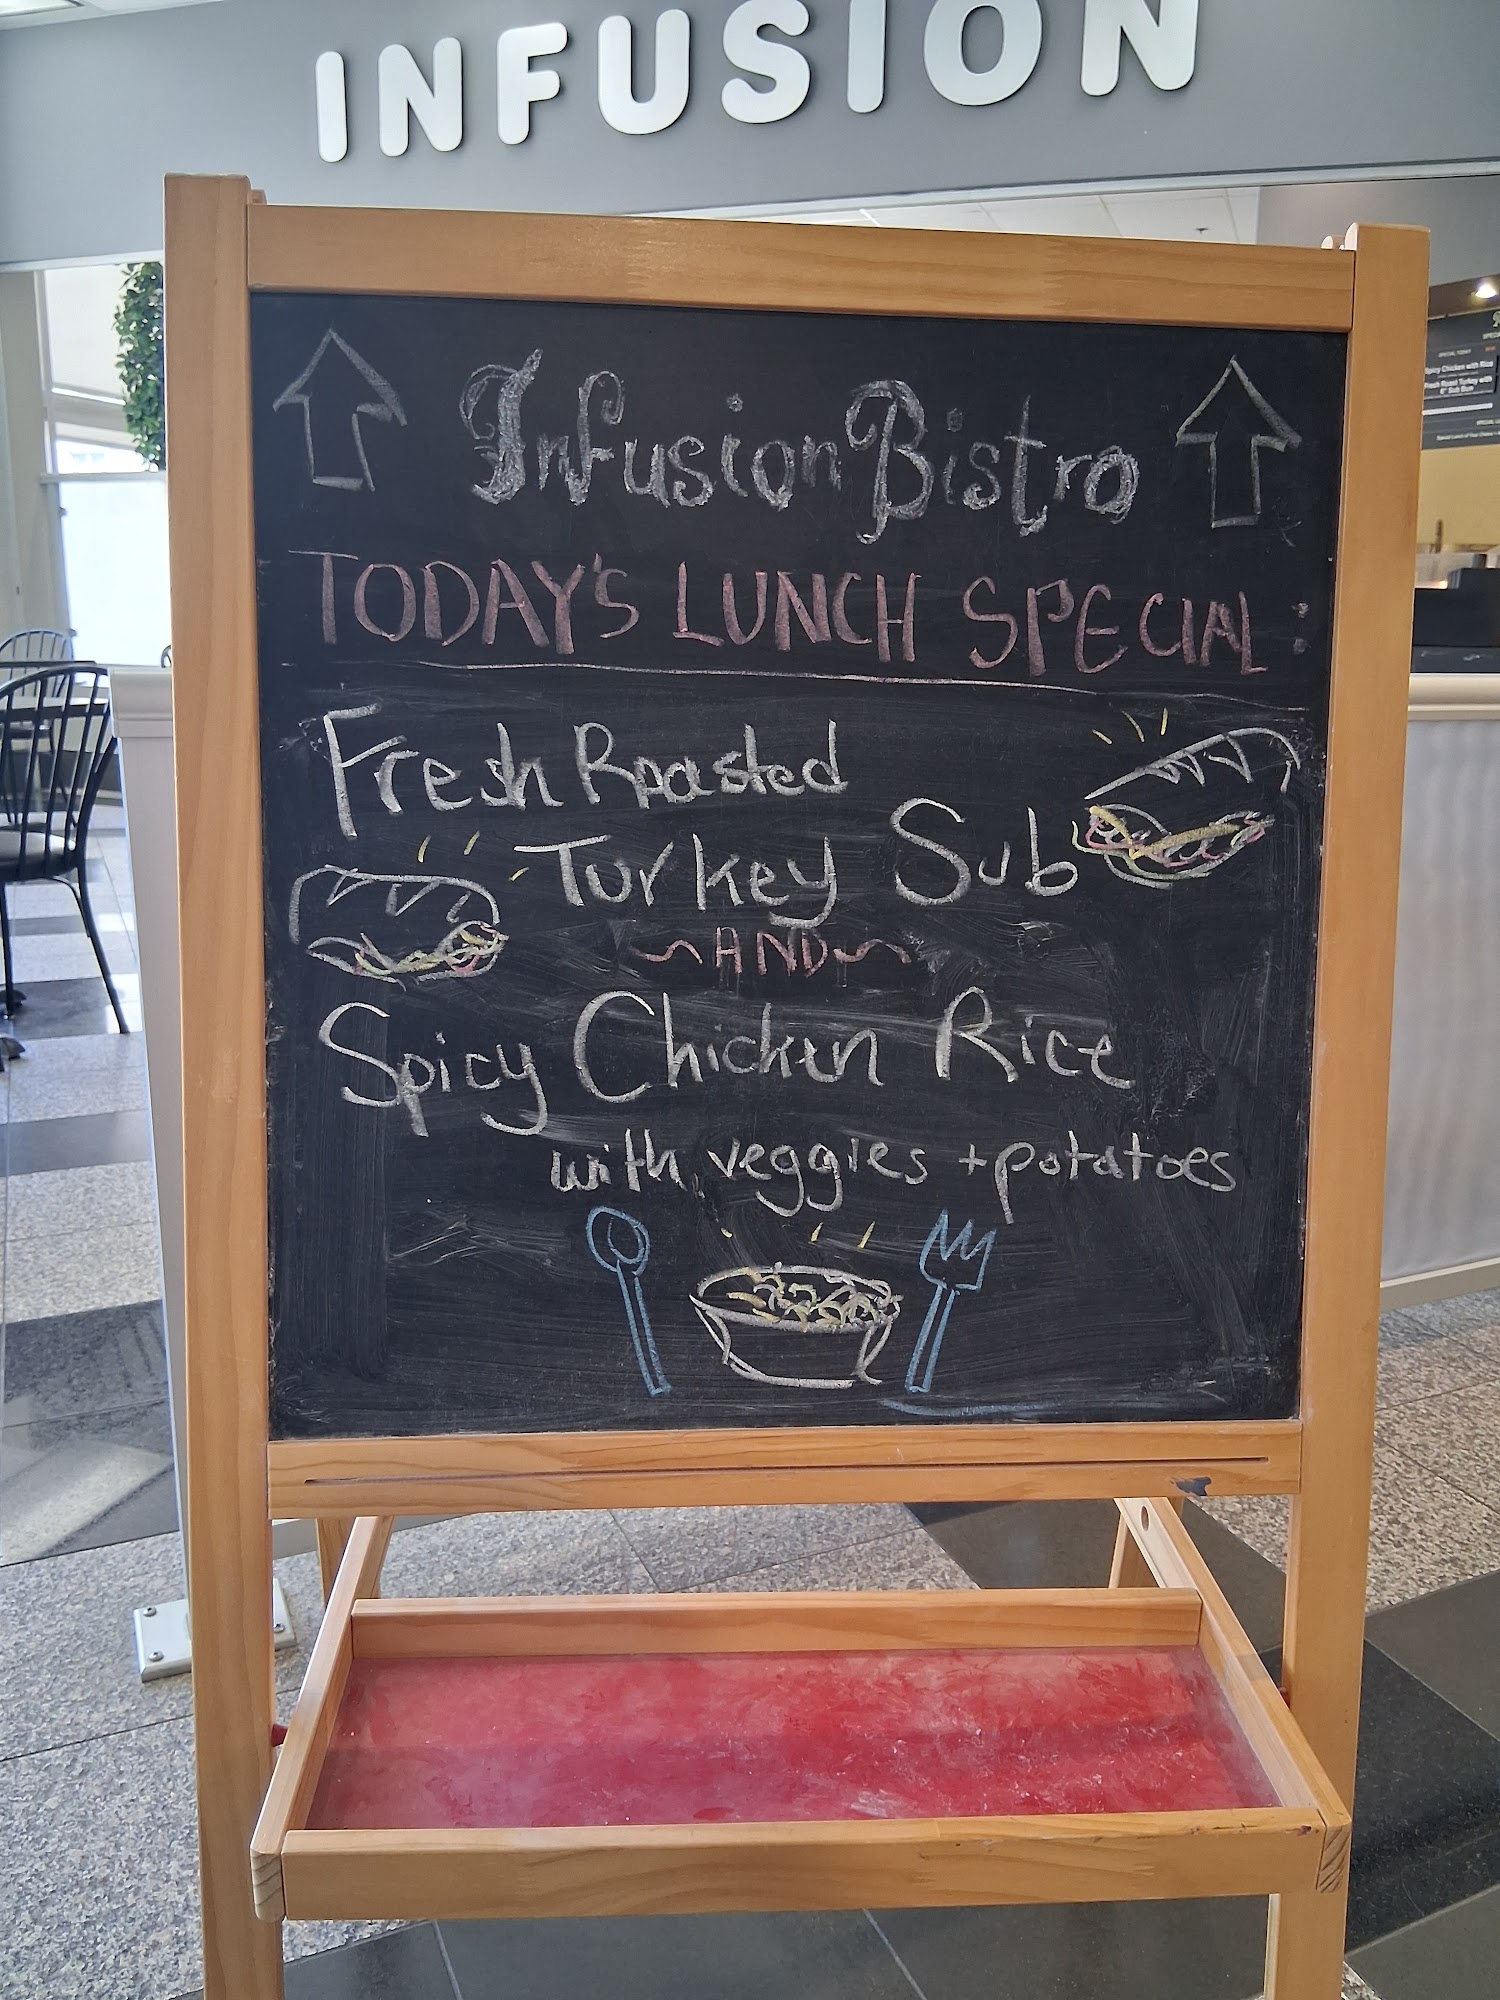 INFUSION
Infusion Bistro
TODAY'S LUNCH SPECIAL:
Fresh Roasted
Turkey Sub
~AND~
Spicy Chicken Rice
with veggies + potatoes
SPECIAL TODAY
Spicy Chicken with Rice
Fresh Roast Turkey with
6" Sub Bun